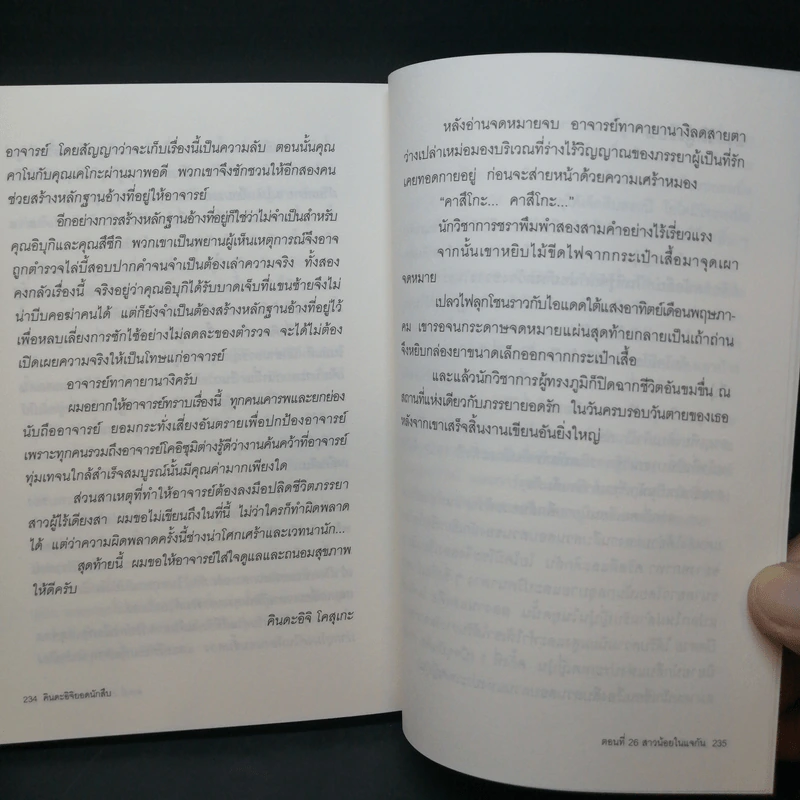 อาจารย์ โดยสัญญาว่าจะเก็บเรื่องนี้เป็นความลับ ตอนนั้นคุณ
คาโนกับคุณเคโกะผ่านมาพอดี พวกเขาจึงชักชวนให้อีกสองคน
ช่วยสร้างหลักฐานอ้างที่อยู่ให้อาจารย์
อีกอย่างการสร้างหลักฐานอ้างที่อยู่ก็ใช่ว่าไม่จำเป็นสำหรับ
คุณอิบุกิและคุณสึชิกิ พวกเขาเป็นพยานผู้เห็นเหตุการณ์จึงอาจ
ถูกตำรวจไล่บี้สอบปากคำจนจำเป็นต้องเล่าความจริง ทั้งสอง
คงกลัวเรื่องนี้ จริงอยู่ว่าคุณอิบุกิได้รับบาดเจ็บที่แขนซ้ายจึงไม่
น่าบีบคอฆ่าคนได้ แต่ก็ยังจำเป็นต้องสร้างหลักฐานอ้างที่อยู่ไว้
เพื่อหลบเลี่ยงการซักไซ้อย่างไม่ลดละของตำรวจ จะได้ไม่ต้อง
เปิดเผยความจริงให้เป็นโทษแก่อาจารย์
อาจารย์ทาคายานางิครับ
ผมอยากให้อาจารย์ทราบเรื่องนี้ ทุกคนเคารพและยกย่อง
นับถืออาจารย์ ยอมกระทั่งเสี่ยงอันตรายเพื่อปกป้องอาจารย์
เพราะทุกคนรวมถึงอาจารย์โคอิซุมิต่างรู้ดีว่างานค้นคว้าที่อาจารย์
ทุ่มเทจนใกล้สำเร็จสมบูรณ์นั้นมีคุณค่ามากเพียงใด
ส่วนสาเหตุที่ทำให้อาจารย์ต้องลงมือปลิดชีวิตภรรยา
สาวผู้ไร้เดียงสา ผมขอไม่เขียนถึงในที่นี้ ไม่ว่าใครก็ทำผิดพลาด
ได้ แต่ว่าความผิดพลาดครั้งนี้ช่างน่าโศกเศร้าและเวทนานัก...
สุดท้ายนี้ ผมขอให้อาจารย์ใส่ใจดูแลและถนอมสุขภาพ
ให้ดีครับ
คินดะอิจิ โคสุเกะ
234 คินดะอิจิยอดนักสืบ
หลังอ่านจดหมายจบ อาจารย์ทาคายานางิลดสายตา
ว่างเปล่าเหม่อมองบริเวณที่ร่างไร้วิญญาณของภรรยาผู้เป็นที่รัก
เคยทอดกายอยู่ ก่อนจะส่ายหน้าด้วยความเศร้าหมอง
“คาสึโกะ... คาสึโกะ...”
นักวิชาการชราพึมพำสองสามคำอย่างไร้เรี่ยวแรง
จากนั้นเขาหยิบไม้ขีดไฟจากกระเป๋าเสื้อมาจุดเผา
จดหมาย
เปลวไฟลุกโชนราวกับไอแดดใต้แสงอาทิตย์เดือนพฤษภา-
คม เขารอจนกระดาษจดหมายแผ่นสุดท้ายกลายเป็นเถ้าถ่าน
จึงหยิบกล่องยาขนาดเล็กออกจากกระเป๋าเสื้อ
และแล้วนักวิชาการผู้ทรงภูมิก็ปิดฉากชีวิตอันขมขื่น ณ
สถานที่แห่งเดียวกับภรรยายอดรัก ในวันครบรอบวันตายของเธอ
หลังจากเขาเสร็จสิ้นงานเขียนอันยิ่งใหญ่
ตอนที่ 26 สาวน้อยในแจกัน 235